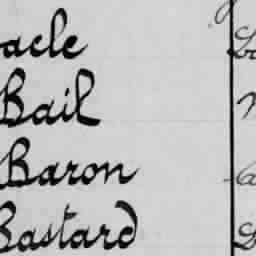 acle
Bail
Baron
Bastard